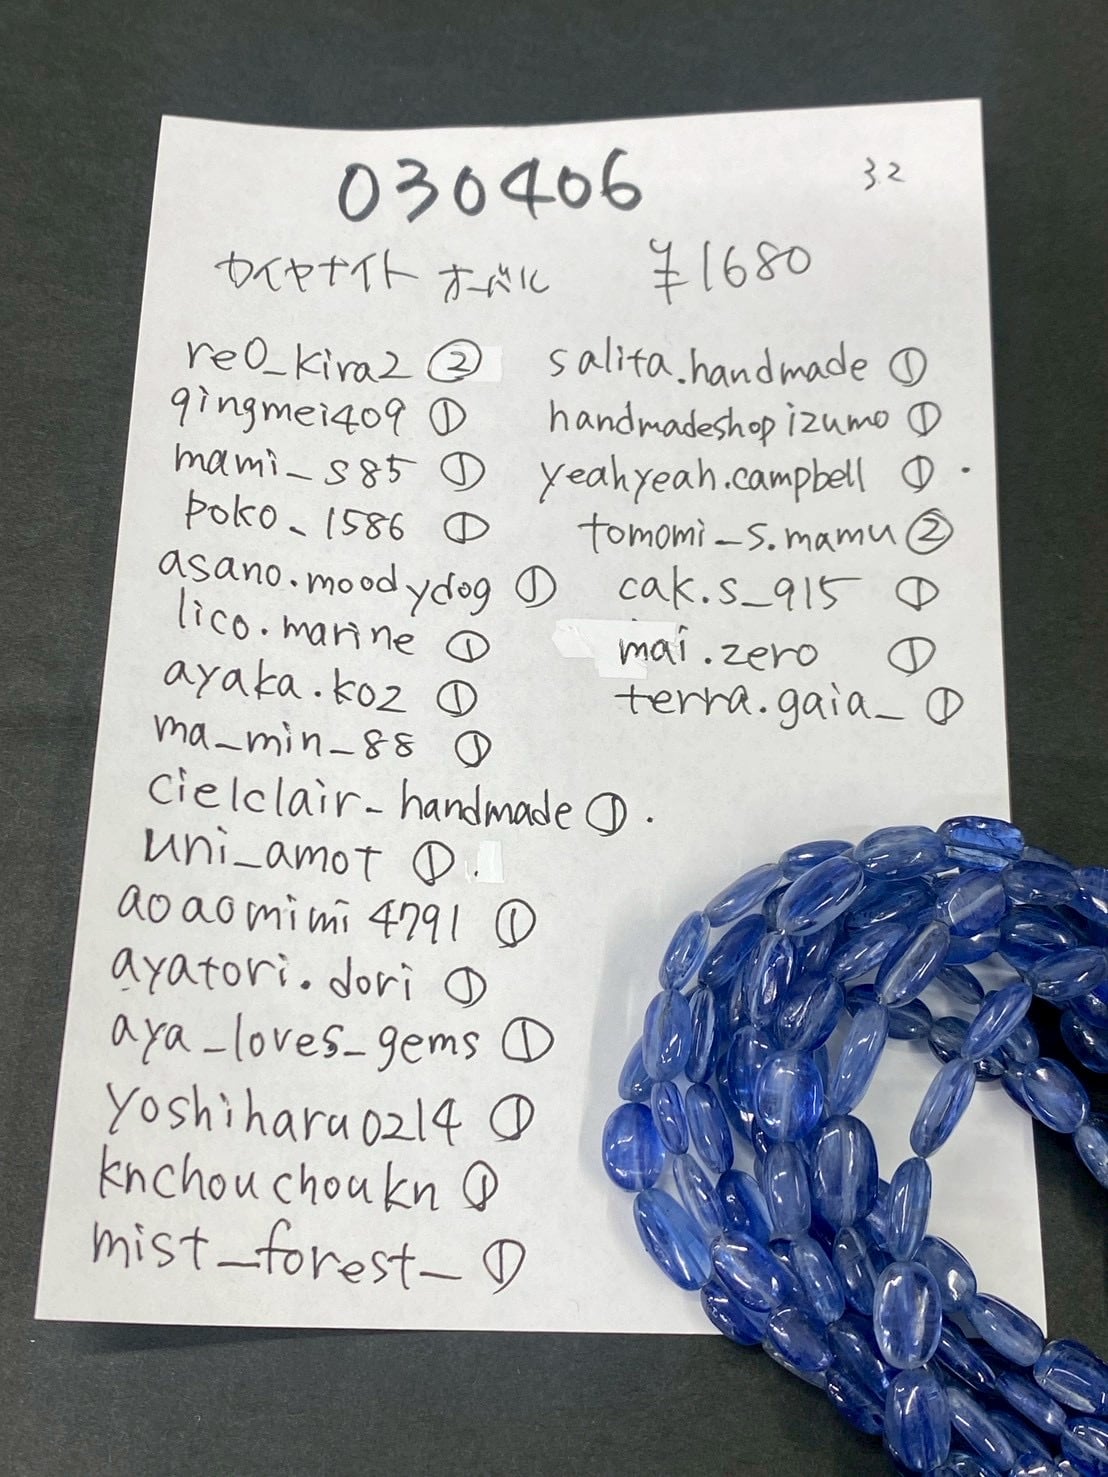 030406
3.2
カイヤナイト オーバル ¥1680
re0_kira2 ②
qingmei409 ①
mami_s85 ①
poko_1586 ①
asano.moodydog ①
lico.marine ①
ayaka.koz ①
ma_min_88 ①
cielclair_handmade ①.
uni_amot ①.
aoaomimi4791 ①
ayatori.dori ①
aya_loves_gems ①
yoshiharu0214 ①
knchouchoukn ①
mist_forest_ ①
salita.handmade ①
handmadeshopizumo ①
yeahyeah.campbell ①.
tomomi_s.mamu ②
cak.s_915 ①
mai.zero ①
terra.gaia_ ①